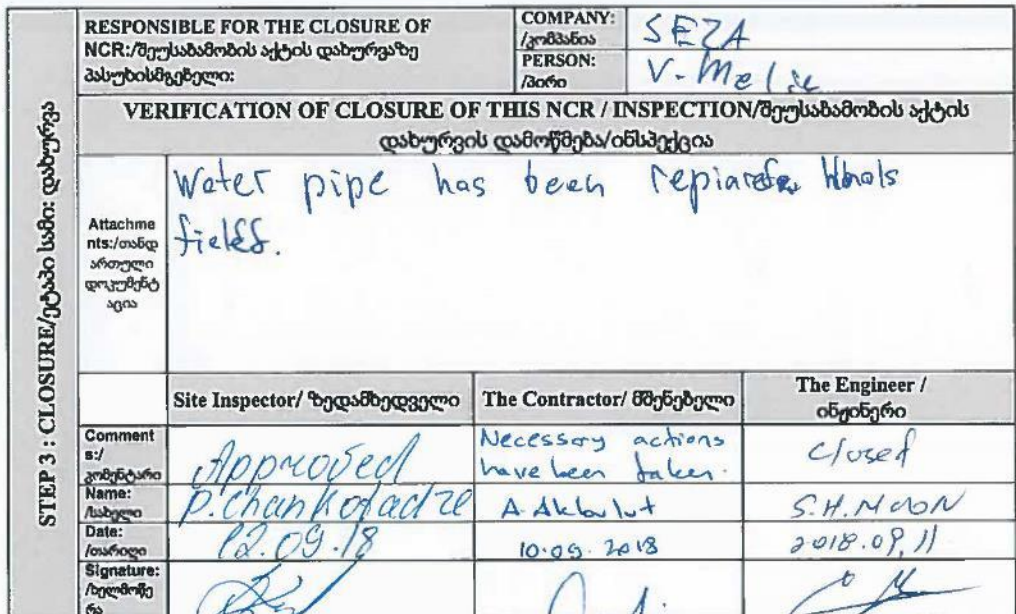 RESPONSIBLE FOR THE CLOSURE OF
NCR:/შეუსაბამობის აქტის დახურვაზე
პასუხისმგებელი:
COMPANY:
/კომპანია
SEZA
PERSON:
/პირი
V. Melik
VERIFICATION OF CLOSURE OF THIS NCR / INSPECTION/შეუსაბამობის აქტის
დახურვის დამოწმება/ინსპექცია
STEP 3 : CLOSURE/ეტაპი სამი: დახურვა
Attachme
nts:/თანდ
ართული
დოკუმენტ
აცია
Water pipe has been
Site Inspector/ ზედამხედველი
The Contractor/ მშენებელი
The Engineer /
ინჟინერი
Comment
s:/
კომენტარი
Approved
Necessary actions
have been taken.
Closed
Name:
/სახელი
P. Chankotadze
A. Akbulut
S.H. MOON
Date:
/თარიღი
12.09.18
10.09.2018
2018.09.11
Signature:
/ხელმოწე
რა